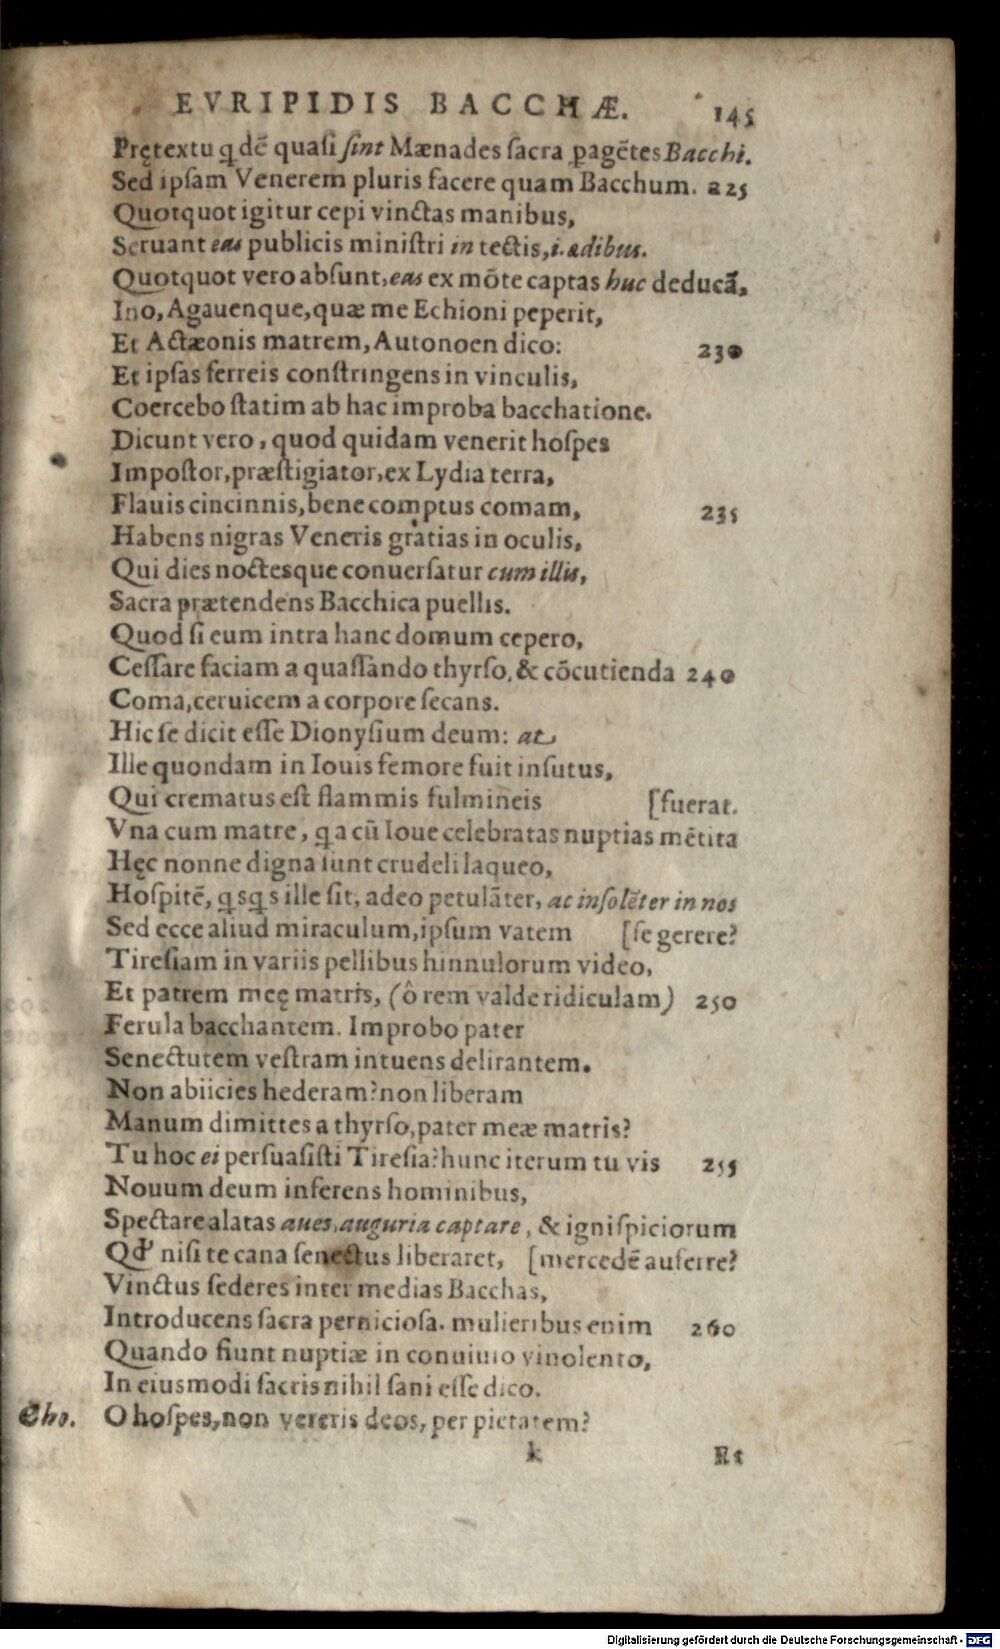 EVRIPIDIS BACCHÆ. 145
Prętextu qdē quasi ſint Mænades ſacra pagētes Bacchi.
Sed ipſam Venerem pluris facere quam Bacchum. 225
Quotquot igitur cepi vinctas manibus,
Seruant eas publicis miniſtri in tectis, i. ædibus.
Quotquot vero abſunt, eas ex mōte captas huc deducā,
Ino, Agauenque, quæ me Echioni peperit,
Et Actæonis matrem, Autonoen dico: 230
Et ipſas ferreis conſtringens in vinculis,
Coercebo ſtatim ab hac improba bacchatione.
Dicunt vero, quod quidam venerit hoſpes
Impoſtor, præſtigiator, ex Lydia terra,
Flauis cincinnis, bene comptus comam, 235
Habens nigras Veneris gratias in oculis,
Qui dies noctesque conuerſatur cum illis,
Sacra prætendens Bacchica puellis.
Quod ſi eum intra hanc domum cepero,
Ceſſare faciam a quaſſando thyrſo, & cōcutienda 240
Coma, ceruicem a corpore ſecans.
Hic ſe dicit eſſe Dionyſium deum: at
Ille quondam in Iouis femore fuit inſutus,
Qui crematus eſt flammis fulmineis [fuerat.
Vna cum matre, q a cū Ioue celebratas nuptias mētita
Hęc nonne digna ſunt crudeli laqueo,
Hoſpitē, qſqs ille ſit, adeo petulāter, ac inſolēter in nos
Sed ecce aliud miraculum, ipſum vatem [ſe gerere?
Tireſiam in variis pellibus hinnulorum video,
Et patrem meę matris, (ô rem valde ridiculam) 250
Ferula bacchantem. Improbo pater
Senectutem veſtram intuens delirantem.
Non abiicies hederam? non liberam
Manum dimittes a thyrſo, pater meæ matris?
Tu hoc ei perſuaſiſti Tireſia? hunc iterum tu vis 255
Nouum deum inferens hominibus,
Spectare alatas aues, auguria captare, & igniſpiciorum
Qđ niſi te cana ſenectus liberaret, [mercedē auferre?
Vinctus ſederes inter medias Bacchas,
Introducens ſacra pernicioſa. mulieribus enim 260
Quando fiunt nuptiæ in conuiuio vinolento,
In eiusmodi ſacris nihil ſani eſſe dico.
Cho. O hoſpes, non vereris deos, per pietatem?
k Et
Digitalisierung gefördert durch die Deutsche Forschungsgemeinschaft - DFG